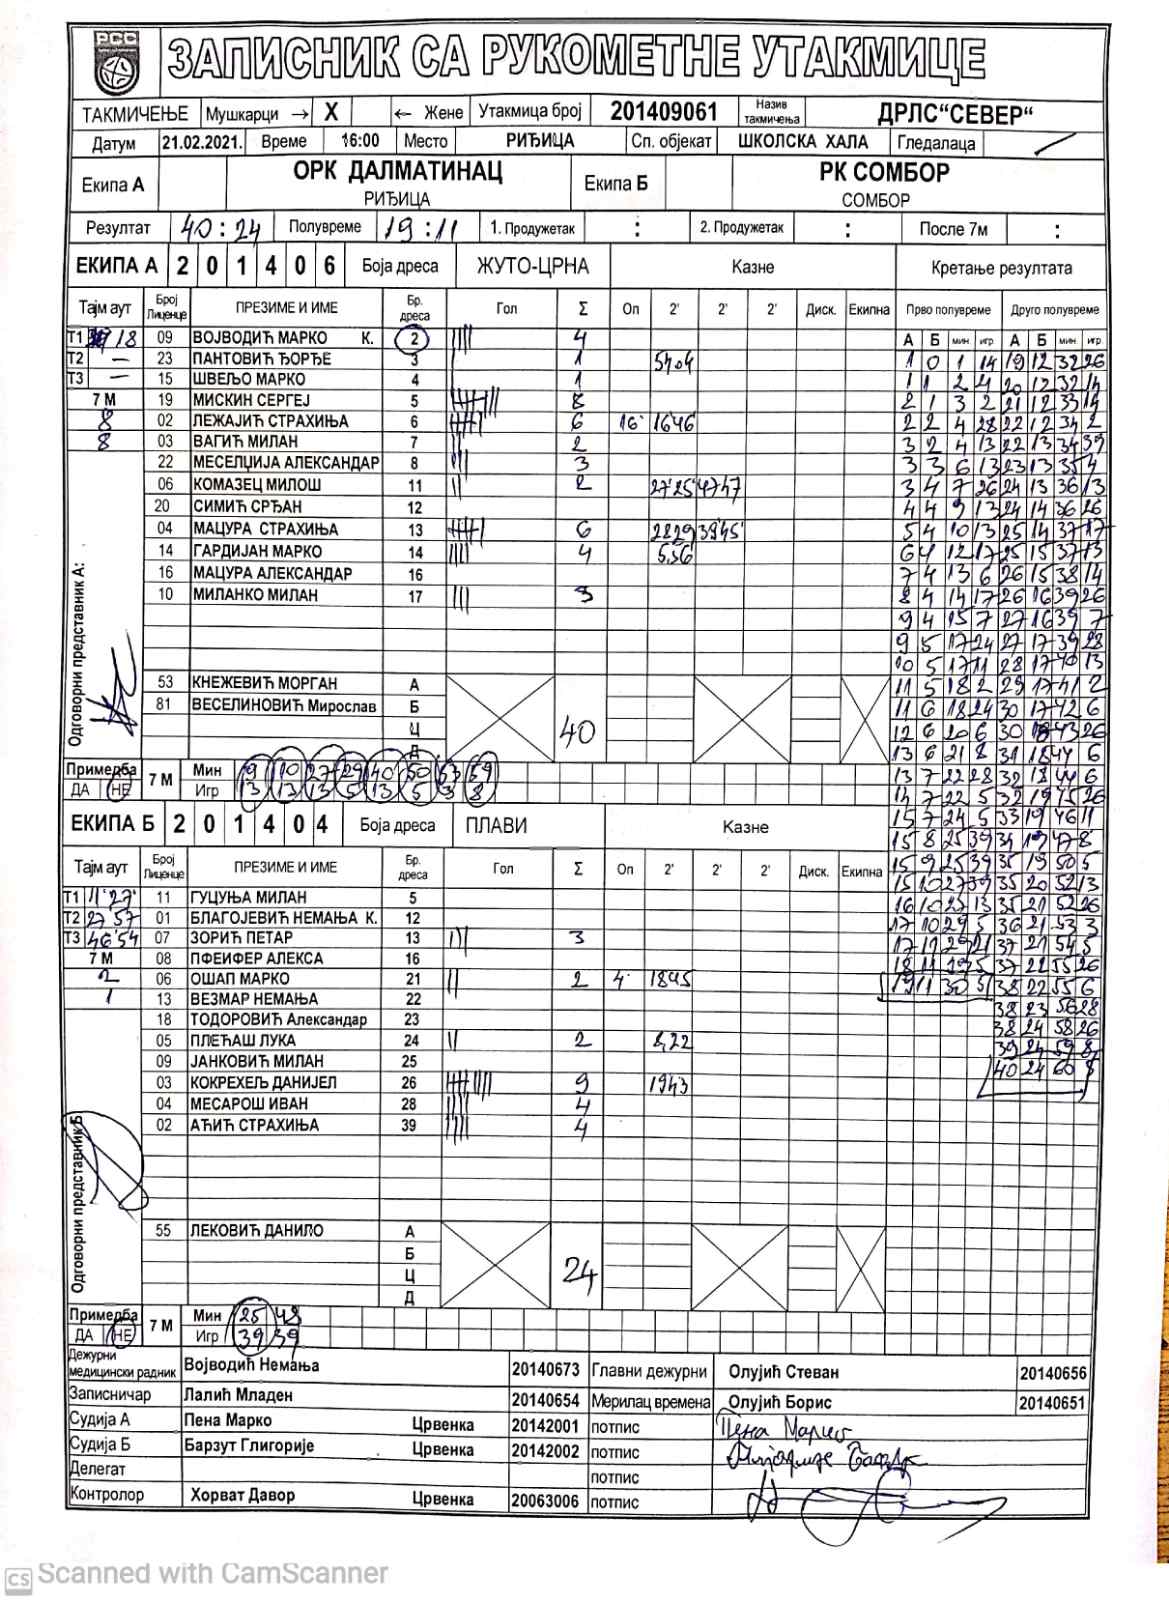 РСС
ЗАПИСНИК СА РУКОМЕТНЕ УТАКМИЦЕ
ТАКМИЧЕЊЕ Мушкарци → X ← Жене Утакмица број 201409061 Назив такмичења ДРЛС“СЕВЕР“
Датум 21.02.2021. Време 16:00 Место РИЂИЦА Сп. објекат ШКОЛСКА ХАЛА Гледалаца
Екипа А ОРК ДАЛМАТИНАЦ Екипа Б РК СОМБОР
РИЂИЦА СОМБОР
Резултат 40:24 Полувреме 19:11 1. Продужетак : 2. Продужетак : После 7м :
ЕКИПА А 2 0 1 4 0 6 Боја дреса ЖУТО-ЦРНА Казне Кретање резултата
Тајм аут Број Лиценце ПРЕЗИМЕ И ИМЕ Бр. дреса Гол Σ Оп 2' 2' 2' Диск. Екипна Прво полувреме Друго полувреме
А Б мин игр А Б мин игр
Т1 18 09 ВОЈВОДИЋ МАРКО К. 2 |||| 4
Т2 — 23 ПАНТОВИЋ ЂОРЂЕ 3 | 1 5404 1 0 1 14 19 12 32 26
Т3 — 15 ШВЕЉО МАРКО 4 1 1 1 2 4 20 12 32 14
7 М 19 МИСКИН СЕРГЕЈ 5 8 2 1 3 2 21 12 33 14
8 02 ЛЕЖАЈИЋ СТРАХИЊА 6 6 16' 1646 2 2 4 28 22 12 34 2
8 03 ВАГИЋ МИЛАН 7 || 2 3 2 4 13 22 13 34 39
22 МЕСЕЛЏИЈА АЛЕКСАНДАР 8 ||| 3 3 3 6 13 23 13 35 4
06 КОМАЗЕЦ МИЛОШ 11 || 2 27'25 4747 3 4 7 26 24 13 36 13
20 СИМИЋ СРЂАН 12 4 4 9 13 24 14 36 26
04 МАЦУРА СТРАХИЊА 13 6 2829 3945 5 4 10 13 25 14 37 17
14 ГАРДИЈАН МАРКО 14 |||| 4 5,56 6 4 12 17 25 15 37 13
16 МАЦУРА АЛЕКСАНДАР 16 7 4 13 6 26 15 38 14
10 МИЛАНКО МИЛАН 17 ||| 3 8 4 14 17 26 16 39 26
9 4 15 7 27 16 39 7
9 5 17 24 27 17 39 28
10 5 17 11 28 17 40 13
53 КНЕЖЕВИЋ МОРГАН А 11 5 18 2 29 17 41 2
81 ВЕСЕЛИНОВИЋ Мирослав Б 11 6 18 24 30 17 42 6
Ц 40 12 6 20 6 30 18 43 26
Д 13 6 21 8 31 18 44 6
Одговорни представник А:
Примедба 7 М Мин 9 10 27 29 40 50 53 59 13 7 22 28 32 18 44 6
ДА НЕ Игр 13 13 13 5 13 5 3 8 14 7 22 5 32 19 45 26
ЕКИПА Б 2 0 1 4 0 4 Боја дреса ПЛАВИ Казне 15 7 24 5 33 19 46 11
15 8 25 39 34 19 47 8
Тајм аут Број Лиценце ПРЕЗИМЕ И ИМЕ Бр. дреса Гол Σ Оп 2' 2' 2' Диск. Екипна 15 9 25 39 35 19 50 5
15 10 27 39 35 20 52 13
Т1 11'27' 11 ГУЦУЊА МИЛАН 5 16 10 27 13 35 21 52 26
Т2 27'57 01 БЛАГОЈЕВИЋ НЕМАЊА К. 12 17 10 29 5 36 21 53 3
Т3 46'54 07 ЗОРИЋ ПЕТАР 13 ||| 3 17 11 29 21 37 21 54 5
7 М 08 ПФЕИФЕР АЛЕКСА 16 18 11 29 5 37 22 55 26
2 06 ОШАП МАРКО 21 || 2 4' 1845 19 11 30 5 38 22 55 6
1 13 ВЕЗМАР НЕМАЊА 22 38 23 56 28
18 ТОДОРОВИЋ Александар 23 38 24 58 26
05 ПЛЕЋАШ ЛУКА 24 || 2 8,22 39 24 59 8
09 ЈАНКОВИЋ МИЛАН 25 40 24 60 8
03 КОКРЕХЕЉ ДАНИЈЕЛ 26 9 1943
04 МЕСАРОШ ИВАН 28 |||| 4
02 АЋИЋ СТРАХИЊА 39 |||| 4
Одговорни представник Б
55 ЛЕКОВИЋ ДАНИЛО А
Б
Ц 24
Д
Примедба 7 М Мин 25 48
ДА НЕ Игр 39 39
Дежурни медицински радник Војводић Немања 20140673 Главни дежурни Олујић Стеван 20140656
Записничар Лалић Младен 20140654 Мерилац времена Олујић Борис 20140651
Судија А Пена Марко Црвенка 20142001 потпис Пена Марко
Судија Б Барзут Глигорије Црвенка 20142002 потпис
Делегат потпис
Контролор Хорват Давор Црвенка 20063006 потпис
CS Scanned with CamScanner